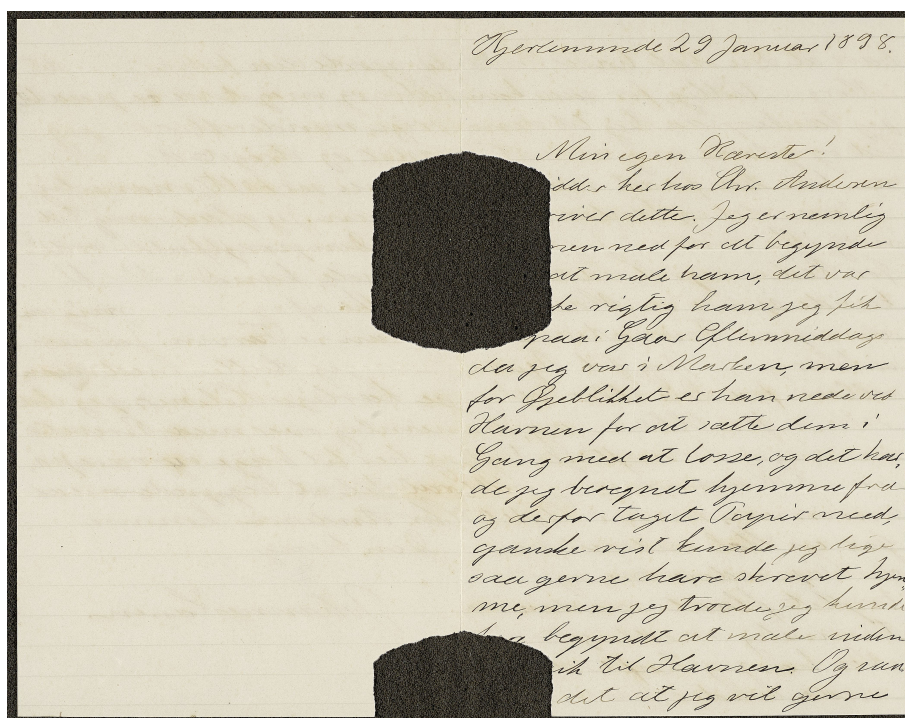 Kjerteminde 29 Januar 1898.
Min egen Kæreste!
idder her hos Chr. Andersen
river dette. Jeg er nemlig
men ned for at begynde
at male ham, det var
ke rigtig ham jeg fik
paa i Gaar Eftermiddags
da jeg var i Marken, men
for Øjeblikket er han nede ved
Havnen for at sætte dem i
Gang med at losse, og det hav,
de jeg beregnet hjemme fra
og derfor taget Papir med,
ganske vist kunde jeg lige
saa gerne have skrevet hjem
me, men jeg troede jeg kunde
begyndt at male inden
ik til Havnen. Og saa
det at jeg vil gerne